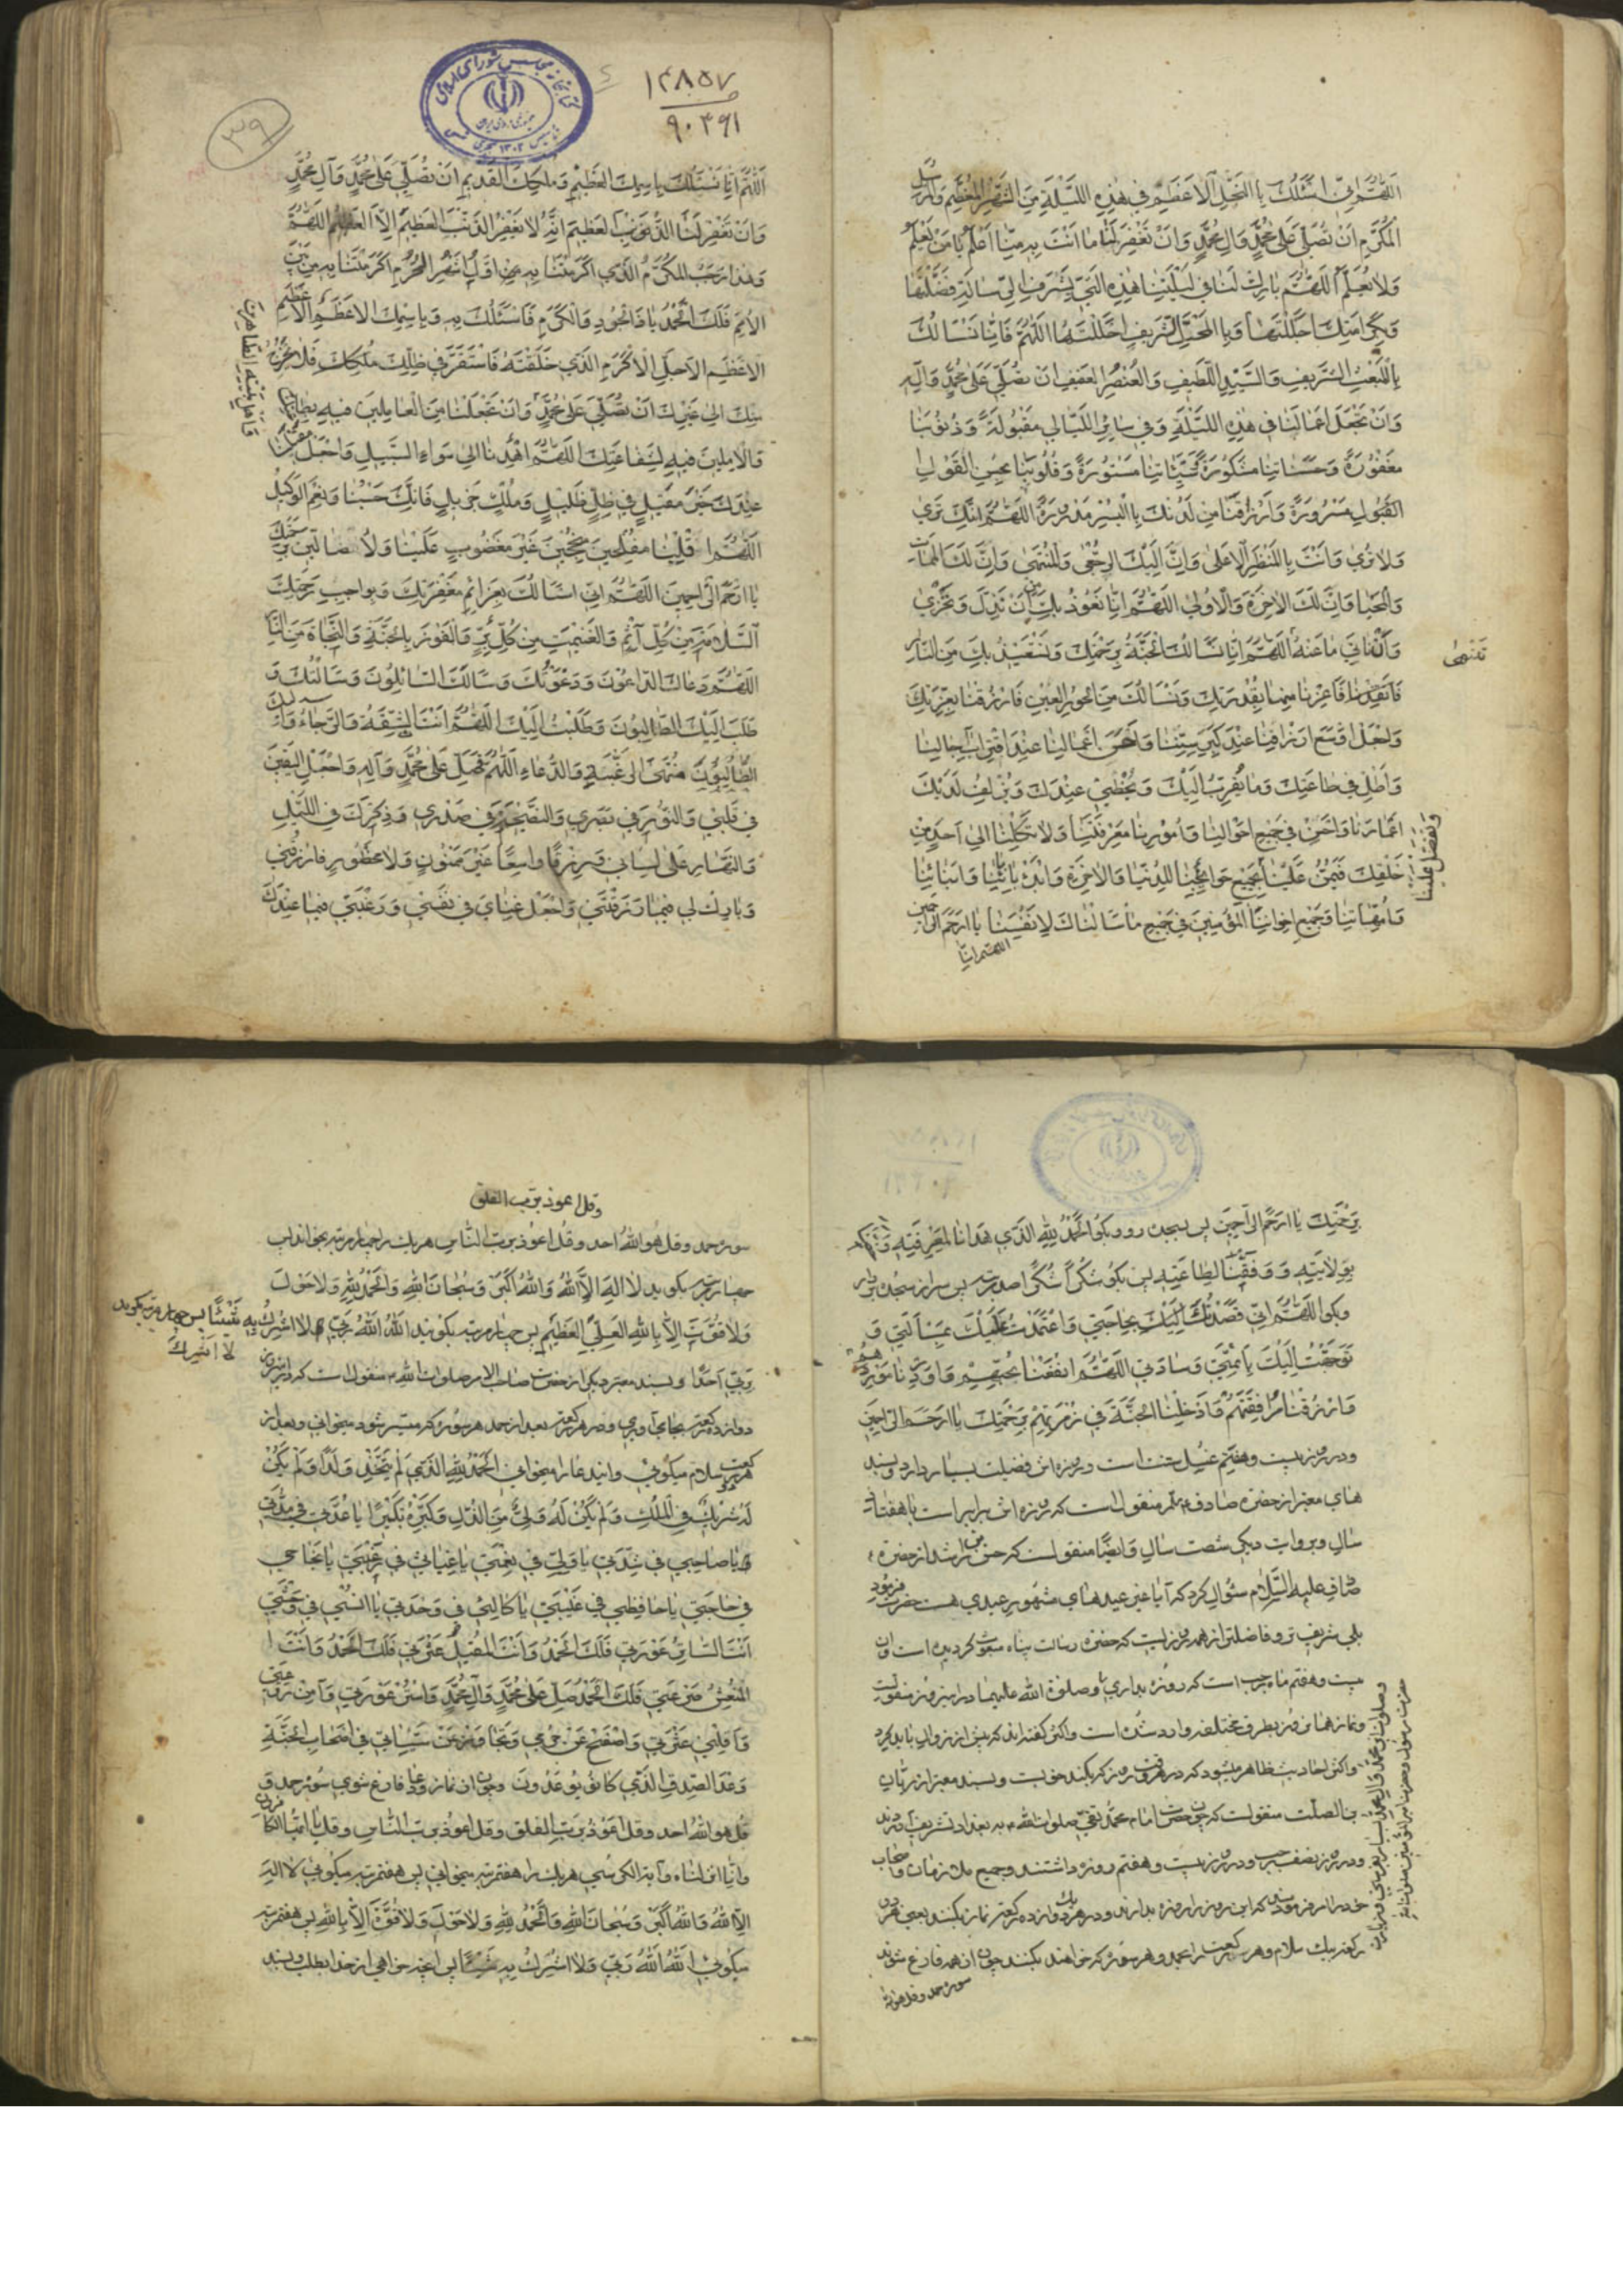 اَللّٰهُمَّ اِنّی اَسْئَلُكَ بِالتَّجَلِّی الْاَعْظَمِ فی هٰذِهِ اللَّیْلَةِ مِنَ الشَّهْرِ الْمُعَظَّمِ وَالْمُرْسَلِ
الْمُكَرَّمِ اَنْ تُصَلِّیَ عَلیٰ مُحَمَّدٍ وَآلِ مُحَمَّدٍ وَاَنْ تَغْفِرَ لَنا ما اَنْتَ بِهِ مِنّا اَعْلَمُ یا مَنْ یَعْلَمُ
وَلا نَعْلَمُ اَللّٰهُمَّ بارِكْ لَنا فی لَیْلَتِنا هٰذِهِ الَّتی بِشَرَفِ الرِّسالَةِ فَضَّلْتَها
وَبِكَرامَتِكَ اَجْلَلْتَها وَبِالْمَحَلِّ الشَّریفِ اَحْلَلْتَها اَللّٰهُمَّ فَاِنّا نَسْالُكَ
بِالْمَبْعَثِ الشَّریفِ وَالسَّیِّدِ اللَّطیفِ وَالْعُنْصُرِ الْعَفیفِ اَنْ تُصَلِّیَ عَلیٰ مُحَمَّدٍ وَآلِهِ
وَاَنْ تَجْعَلَ اَعْمالَنا فی هٰذِهِ اللَّیْلَةِ وَفی سائِرِ اللَّیالی مَقْبُولَةً وَذُنُوبَنا
مَغْفُورَةً وَحَسَناتِنا مَشْكُورَةً سَیِّئاتِنا مَسْتُورَةً وَقُلُوبَنا بِحُسْنِ الْقَوْلِ
الْقَبُولِ مَسْرُورَةً وَاَرْزاقَنا مِنْ لَدُنْكَ بِالْیُسْرِ مَدْرُورَةً اَللّٰهُمَّ اِنَّكَ تَریٰ
وَلا تُریٰ وَاَنْتَ بِالْمَنْظَرِ الْاَعْلیٰ وَاِنَّ اِلَیْكَ الرُّجْعیٰ وَالْمُنْتَهیٰ وَاِنَّ لَكَ الْمَماتَ
وَالْمَحْیا وَاِنَّ لَكَ الْاٰخِرَةَ وَالْاُولیٰ اَللّٰهُمَّ اِنّا نَعُوذُ بِكَ مِنْ اَنْ نَذِلَّ وَنَخْزیٰ
وَاَنْ نَاْتِیَ ما عَنْهُ اَللّٰهُمَّ اِنّا نَسْالُكَ الْجَنَّةَ بِرَحْمَتِكَ وَنَسْتَعیذُ بِكَ مِنَ النّارِ
تَنْهیٰ
فَاَعِذْنا مِنْها بِقُدْرَتِكَ وَنَسْالُكَ مِنَ الْحُورِ الْعینِ فَارْزُقْنا بِعِزَّتِكَ
وَاجْعَلْ اَوْسَعَ اَرْزاقِنا عِنْدَ كِبَرِ سِنِّنا وَاَحْسَنَ اَعْمالِنا عِنْدَ اقْتِرابِ آجالِنا
وَاَطِلْ فی طاعَتِكَ وَما یُقَرِّبُ اِلَیْكَ وَیُحْظی عِنْدَكَ وَیُزْلِفُ لَدَیْكَ
اَعْمارَنا وَاَحْسِنْ فی جَمیعِ اَحْوالِنا وَاُمُورِنا مَعْرِفَتَنا وَلا تَكِلْنا اِلیٰ اَحَدٍ مِنْ
خَلْقِكَ فَیَمُنَّ عَلَیْنا بِجَمیعِ حَوائِجِنا لِلدُّنْیا وَالْاٰخِرَةِ وَابْدَءْ بِآبائِنا وَاَبْنائِنا
وَتَفَضَّلْ عَلَیْنا
وَاُمَّهاتِنا وَجَمیعِ اِخْوانِنَا الْمُؤْمِنینَ فی جَمیعِ ما سَاَلْناكَ لِاَنْفُسِنا یا اَرْحَمَ الرّاحِمینَ
اللهم انا
١٤٨٥٧
٩٠٣٦١
٣٩
اَللّٰهُمَّ اِنّا نَسْئَلُكَ بِاسْمِكَ الْعَظیمِ وَمُلْكِكَ الْقَدیمِ اَنْ تُصَلِّیَ عَلیٰ مُحَمَّدٍ وَآلِ مُحَمَّدٍ
وَاَنْ تَغْفِرَ لَنَا الذَّنْبَ الْعَظیمَ اِنَّهُ لا یَغْفِرُ الذَّنْبَ الْعَظیمَ اِلَّا الْعَظیمُ اَللّٰهُمَّ
وَهٰذا رَجَبٌ الْمُكَرَّمُ الَّذی اَكْرَمْتَنا بِهِ اَوَّلُ اَشْهُرِ الْحُرُمِ اَكْرَمْتَنا بِهِ مِنْ بَیْنِ
الْاُمَمِ فَلَكَ الْحَمْدُ یا ذَا الْجُودِ وَالْكَرَمِ فَاَسْئَلُكَ بِهِ وَبِاسْمِكَ الْاَعْظَمِ الْاَعْظَمِ
الْاَعْظَمِ الْاَجَلِّ الْاَكْرَمِ الَّذی خَلَقْتَهُ فَاسْتَقَرَّ فی ظِلِّكَ فَلا یَخْرُجُ
مِنْكَ اِلیٰ غَیْرِكَ اَنْ تُصَلِّیَ عَلیٰ مُحَمَّدٍ وَاَنْ تَجْعَلَنا مِنَ الْعامِلینَ فیهِ بِطاعَتِكَ
وَاَهْلِ بَیْتِهِ الطّاهِرینَ
وَالْاٰمِلینَ فیهِ لِشَفاعَتِكَ اَللّٰهُمَّ اهْدِنا اِلیٰ سَواءِ السَّبیلِ وَاجْعَلْ مَقیلَنا
عِنْدَكَ خَیْرَ مَقیلٍ فی ظِلٍّ ظَلیلٍ وَمُلْكٍ جَزیلٍ فَاِنَّكَ حَسْبُنا وَنِعْمَ الْوَكیلُ
اَللّٰهُمَّ اقْلِبْنا مُفْلِحینَ مُنْجِحینَ غَیْرَ مَغْضُوبٍ عَلَیْنا وَلا ضالّینَ بِرَحْمَتِكَ
یا اَرْحَمَ الرّاحِمینَ اَللّٰهُمَّ اِنّی اَسْالُكَ بِعَزائِمِ مَغْفِرَتِكَ وَبِواجِبِ رَحْمَتِكَ
السَّلامَةَ مِنْ كُلِّ اِثْمٍ وَالْغَنیمَةَ مِنْ كُلِّ بِرٍّ وَالْفَوْزَ بِالْجَنَّةِ وَالنَّجاةَ مِنَ النّارِ
اَللّٰهُمَّ دَعاكَ الدّاعُونَ وَدَعَوْتُكَ وَسَاَلَكَ السّائِلُونَ وَسَاَلْتُكَ وَ
طَلَبَ اِلَیْكَ الطّالِبُونَ وَطَلَبْتُ اِلَیْكَ اَللّٰهُمَّ اَنْتَ الثِّقَةُ وَالرَّجاءُ
مُنْتَهَی الرَّغْبَةِ وَالدُّعاءِ اَللّٰهُمَّ فَصَلِّ عَلیٰ مُحَمَّدٍ وَآلِهِ وَاجْعَلِ الْیَقینَ
فی قَلْبی وَالنُّورَ فی بَصَری وَالنَّصیحَةَ فی صَدْری وَذِكْرَكَ فی اللَّیْلِ
وَالنَّهارِ عَلیٰ لِسانی وَرِزْقًا واسِعًا غَیْرَ مَمْنُونٍ وَلا مَحْظُورٍ فَارْزُقْنی
وَبارِكْ لی فیما رَزَقْتَنی وَاجْعَلْ غِنایَ فی نَفْسی وَرَغْبَتی فیما عِنْدَكَ
بِرَحْمَتِكَ یا اَرْحَمَ الرّاحِمینَ پس بسجده رو و بگو اَلْحَمْدُ لِلّٰهِ الَّذی هَدانا لِمَعْرِفَتِهِ وَ
بِوِلایَتِهِ وَوَفَّقَنا لِطاعَتِهِ پس بگو شُكْرًا شُكْرًا صد مرتبه پس سر از سجده بردار
وبگو اَللّٰهُمَّ اِنّی قَصَدْتُكَ بِحاجَتی وَاعْتَمَدْتُ عَلَیْكَ بِمَسْاَلَتی وَ
تَوَجَّهْتُ اِلَیْكَ بِاَئِمَّتی وَسادَتی اَللّٰهُمَّ انْفَعْنا بِحُبِّهِمْ وَاَوْرِدْنا مَوْرِدَهُمْ
وَارْزُقْنا مُرافَقَتَهُمْ وَاَدْخِلْنَا الْجَنَّةَ فی زُمْرَتِهِمْ بِرَحْمَتِكَ یا اَرْحَمَ الرّاحِمینَ
ودر روز بیست وهفتم غسل سنت است و روزه اش فضیلت بسیار دارد وبسند
های معتبر از حضرت صادق منقول است که روزه اش برابر است با هفتاد
سال وبروایت دیگر شصت سال وایضًا منقولست که حسن بن راشد از حضرت
صادق علیه السلام سؤال کرد که آیا غیر عیدهای مشهور عیدی هست حضرت فرمود
بلی شریف تر و فاضلتر از همه روزیست که حضرت رسالت پناه مبعوث گردیده است و آن
بیست وهفتم ماه رجب است که روزه بداری
ونماز این روز بطرق مختلفه وارد شده است واکثر گفته اند که پیش از زوال باید کرد
واکثر احادیث ظاهر میشود که در هر وقت روز که بکند خوبست وبسند معتبر از ریان
بن الصلت منقولست که چون حضرت امام محمد تقی صلوات الله علیه به بغداد تشریف آوردند
ودر روز نصف رجب ودر روز بیست وهفتم روزه داشتند وجمیع ملازمان واصحاب
خود را امر فرمودند که این روز را روزه بدارند ودر هر یک دوازده رکعت نماز بکنند یعنی هر دو
رکعت بیک سلام وهر رکعت را بحمد وهر سوره که خواهند بکنند چون از همه فارغ شوند
سوره حمد وقل هو الله
وقل اعوذ برب الفلق
سوره حمد وقل هو الله احد وقل اعوذ برب الناس هر یک را چهار مرتبه بخواند پس
چهار مرتبه بگوید لا اِلٰهَ اِلَّا اللّٰهُ وَاللّٰهُ اَكْبَرُ وَسُبْحانَ اللّٰهِ وَالْحَمْدُ لِلّٰهِ وَلا حَوْلَ
وَلا قُوَّةَ اِلّا بِاللّٰهِ الْعَلِیِّ الْعَظیمِ پس چهار مرتبه بگوید اَللّٰهُ اَللّٰهُ رَبّی لا اُشْرِكُ بِهِ شَیْئًا پس چهار مرتبه بگوید
لا اُشْرِكُ
بِرَبّی اَحَدًا وبسند معتبر دیگر از حضرت صاحب الامر صلوات الله علیه منقول است که در این روز
دوازده رکعت نماز بجا می آوری ودر هر رکعت بعد از حمد هر سوره که میسر شود میخوانی وبعد از
هر دو رکعت سلام میگوئی واین دعا را میخوانی اَلْحَمْدُ لِلّٰهِ الَّذی لَمْ یَتَّخِذْ وَلَدًا وَلَمْ یَكُنْ
لَهُ شَریكٌ فِی الْمُلْكِ وَلَمْ یَكُنْ لَهُ وَلِیٌّ مِنَ الذُّلِّ وَكَبِّرْهُ تَكْبیرًا یا عُدَّتی فی مُدَّتی
یا صاحِبی فی شِدَّتی یا وَلِیّی فی نِعْمَتی یا غِیاثی فی رَغْبَتی یا نَجاحی
فی حاجَتی یا حافِظی فی غَیْبَتی یا كالِئی فی وَحْدَتی یا اُنْسی فی وَحْشَتی
اَنْتَ السّاتِرُ عَوْرَتی فَلَكَ الْحَمْدُ وَاَنْتَ الْمُقیلُ عَثْرَتی فَلَكَ الْحَمْدُ وَاَنْتَ
الْمُنْعِشُ صَرْعَتی فَلَكَ الْحَمْدُ صَلِّ عَلیٰ مُحَمَّدٍ وَآلِ مُحَمَّدٍ وَاسْتُرْ عَوْرَتی وَآمِنْ رَوْعَتی
وَاَقِلْنی عَثْرَتی وَاصْفَحْ عَنْ جُرْمی وَتَجاوَزْ عَنْ سَیِّئاتی فی اَصْحابِ الْجَنَّةِ
وَعْدَ الصِّدْقِ الَّذی كانُوا یُوعَدُونَ وچون از نماز ودعا فارغ شوی سوره حمد و
قل هو الله احد وقل اعوذ برب الفلق وقل اعوذ برب الناس وقل یا ایها الکافرون
وانا انزلناه وآیة الکرسی هر یک را هفت مرتبه میخوانی پس هفت مرتبه میگوئی لا اِلٰهَ
اِلَّا اللّٰهُ وَاللّٰهُ اَكْبَرُ وَسُبْحانَ اللّٰهِ وَالْحَمْدُ لِلّٰهِ وَلا حَوْلَ وَلا قُوَّةَ اِلّا بِاللّٰهِ پس هفت مرتبه
میگوئی اَللّٰهُ اَللّٰهُ رَبّی وَلا اُشْرِكُ بِهِ شَیْئًا پس آنچه خواهی از خدا بطلب وبسند